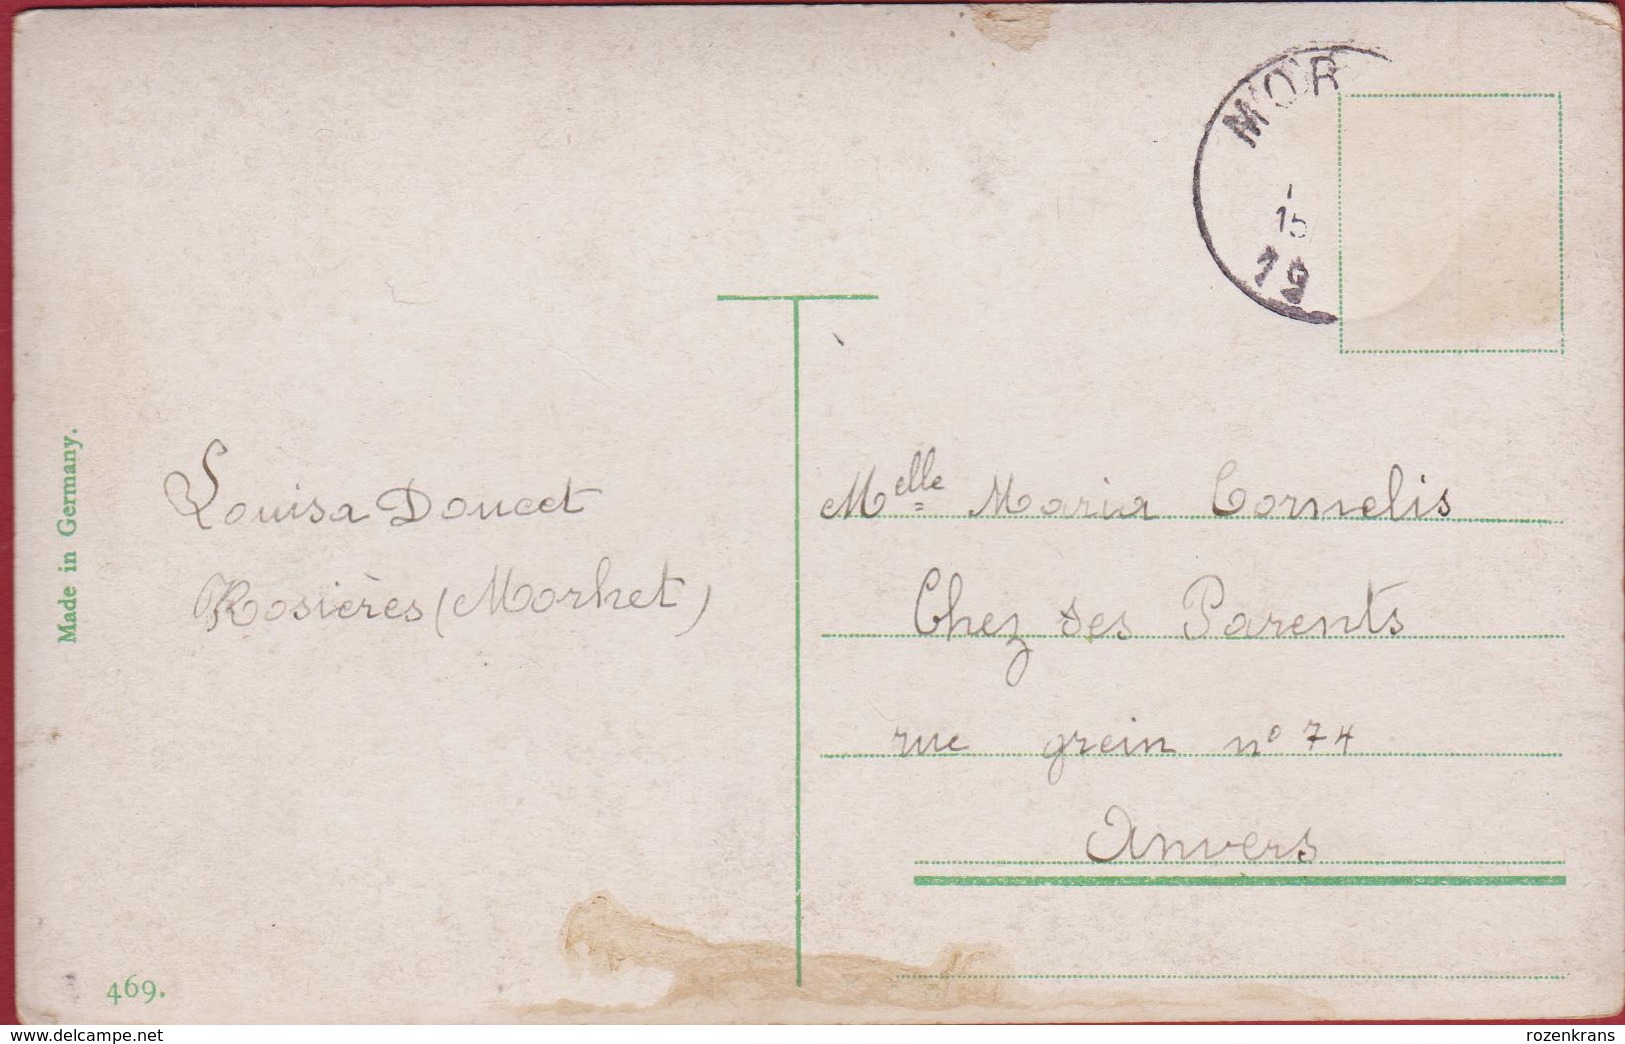 MOR
15
19
Made in Germany.
Louisa Doucet
Rosières (Morhet)
Melle Maria Cornelis
Chez ses Parents
rue grein no 74
Anvers
469.
https://www.delcampe.net
rozenkrans